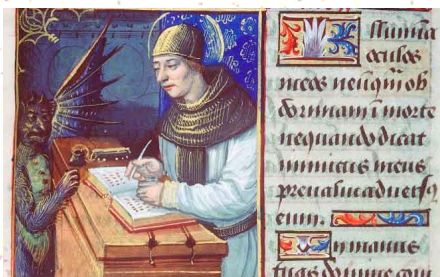 Illumina
oculos
meos ne unq̄m ob
dormiam ī morte
nequando dicat
inimicus meus
preualui aduersꝯ
eum.
In manus
tuas domine com